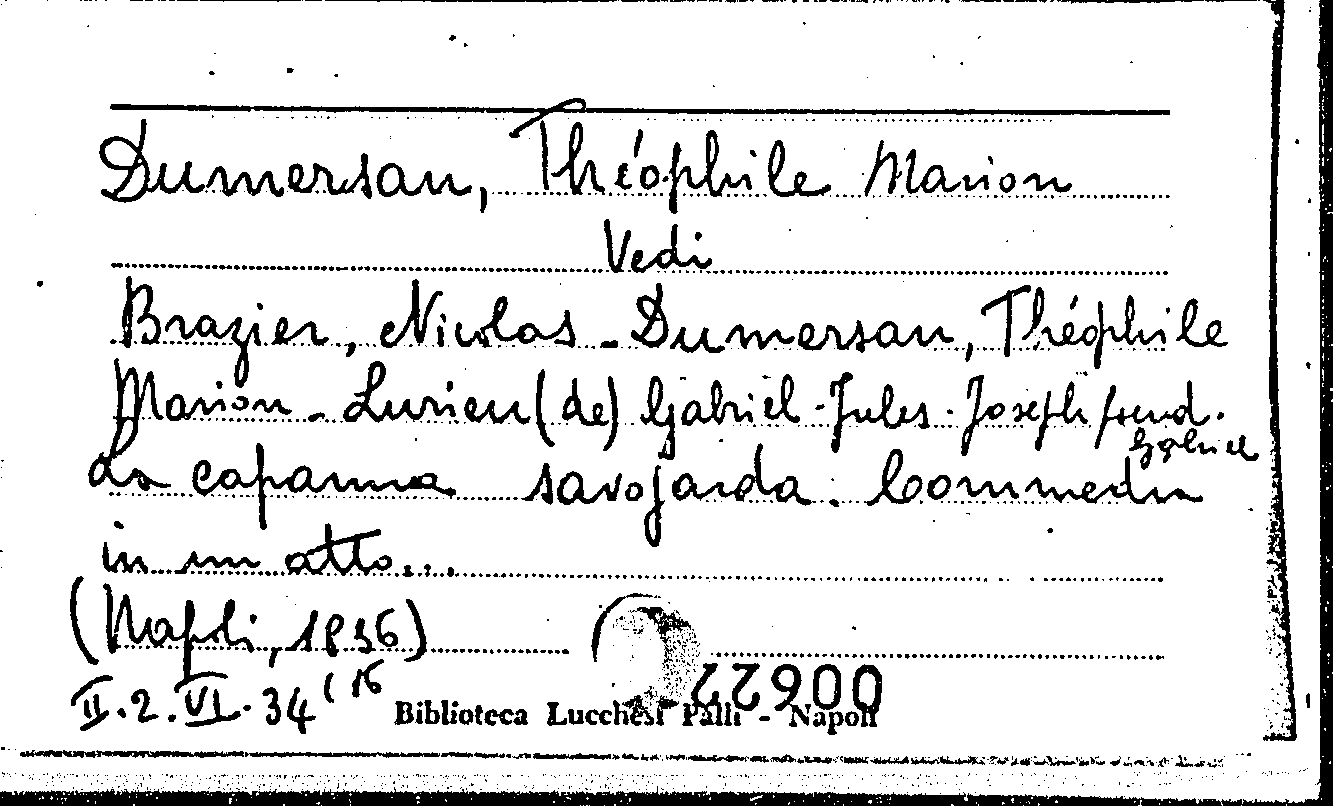 Dumersan, Théophile Marion
Vedi
Brazier, Nicolas - Dumersan, Théophile
Marion - Lurieu (de) Gabriel-Jules-Joseph pseud.
Gabriel
La capanna savojarda. Commedia
in un atto...
(Napoli, 1836)
II.2.VI.34(16
Biblioteca Lucchesi Palli - Napoli
00622